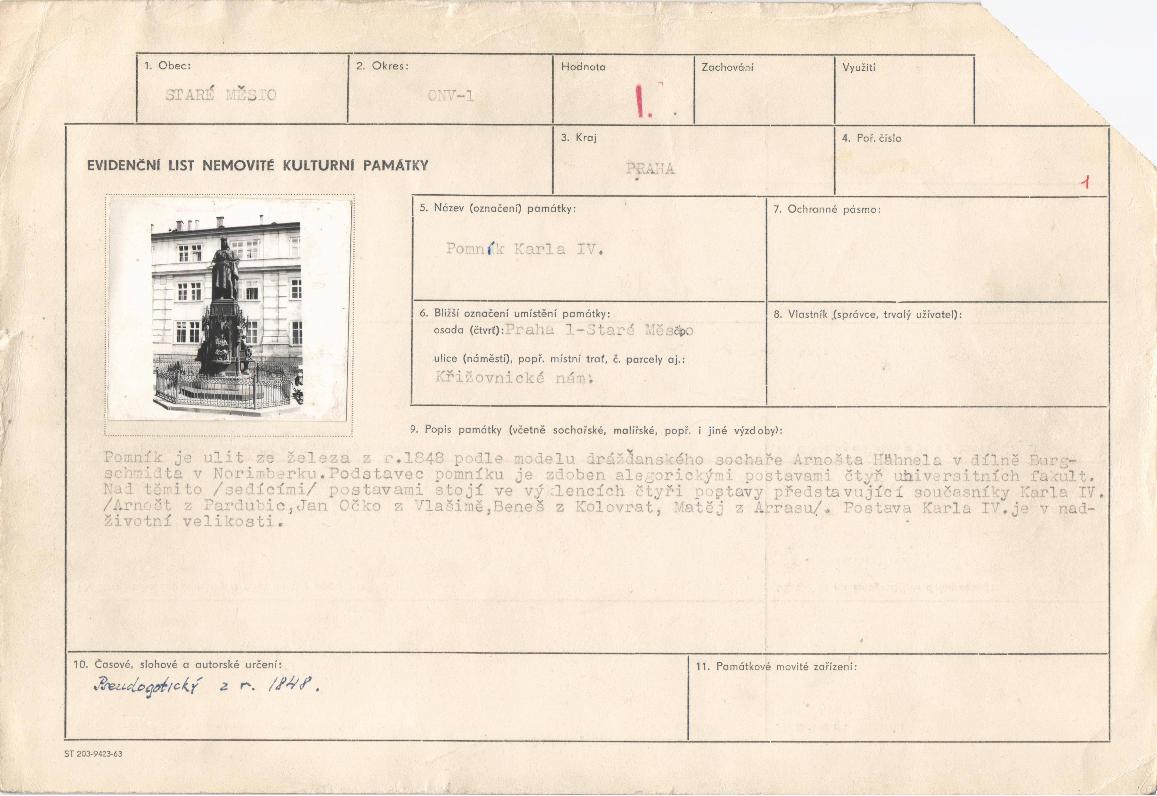 1. Obec:
STARÉ MĚSTO
2. Okres:
ONV-1
Hodnota
I.
Zachování
Využití
EVIDENČNÍ LIST NEMOVITÉ KULTURNÍ PAMÁTKY
3. Kraj
PRAHA
4. Poř. číslo
1
5. Název (označení) památky:
Pomník Karla IV.
7. Ochranné pásmo:
6. Bližší označení umístění památky:
osada (čtvrť): Praha 1-Staré Město
ulice (náměstí), popř. místní trať, č. parcely aj.:
Křižovnické nám.
8. Vlastník (správce, trvalý uživatel):
9. Popis památky (včetně sochařské, malířské, popř. i jiné výzdoby):
Pomník je ulit ze železa z r.1848 podle modelu drážďanského sochaře Arnošta Hähnela v dílně Burg-
schmidta v Norimberku.Podstavec pomníku je zdoben alegorickými postavami čtyř universitních fakult.
Nad těmito /sedícími/ postavami stojí ve výklencích čtyři postavy představující současníky Karla IV.
/Arnošt z Pardubic,Jan Očko z Vlašimě,Beneš z Kolovrat, Matěj z Arrasu/. Postava Karla IV.je v nad-
životní velikosti.
10. Časové, slohové a autorské určení:
Pseudogotický z r. 1848.
11. Památkové movité zařízení:
ST 203-9423-63